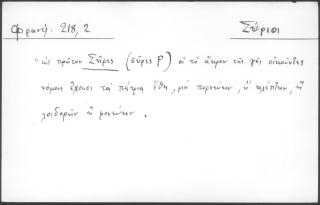 Φραντζ. 218, 2
Σύριοι
"ὡς πρῶτον Σῆρες (σύρες P) οἱ τὸ ἄκρον τῆς γῆς οἰκοῦντες
νόμον ἔχουσι τὰ πάτρια ἔθη, μὴ πορνεύειν, ἢ κλέπτειν, ἢ
λοιδορεῖν ἢ φονεύειν.